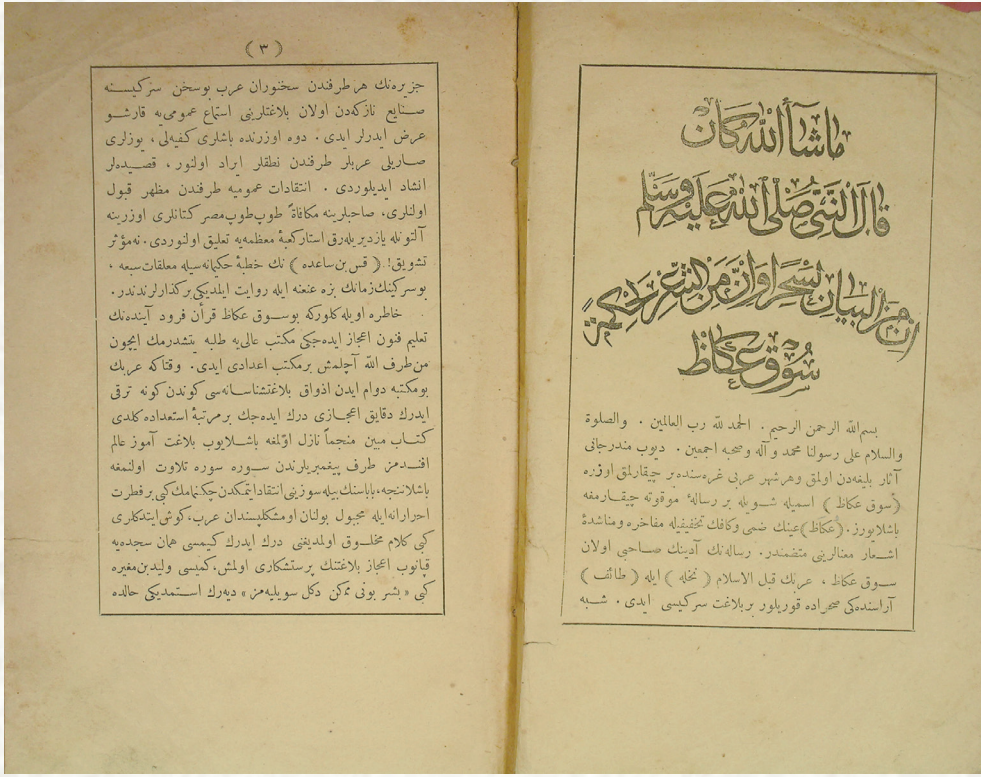 ما شاء الله كان
قال النبى صلى الله عليه وسلم
ان من البيان لسحرا وان من الشعر لحكمة
سوق عكاظ
بسم الله الرحمن الرحيم . الحمد لله رب العالمين . والصلوة
والسلام على رسولنا محمد وآله وصحبه اجمعين . ديوب مندرجاتى
آثار بليغه‌دن اولمق وهر شهر عربى غره‌سنده بر چيقارلمق اوزره
(سوق عكاظ) اسميله شويله بر رسالهٔ موقوته چيقارمغه
باشلايورز. (عكاظ) عينك ضمى وكافك تخفيفيله مفاخره ومناشدهٔ
اشعار معنالرينى متضمندر. رساله‌نك آدينك صاحبى اولان
سوق عكاظ ، عربك قبل الاسلام (نخله) ايله (طائف)
آراسنده‌كى صحراده قوريلور بر بلاغت سركيسى ايدى . شبه
(٣)
جزيره‌نك هر طرفندن سخنوران عرب بو سخن سركيسنه
صنايع نازكه‌دن اولان بلاغتلرينى استماع عمومى‌يه قارشو
عرض ايدرلر ايدى . دوه اوزرنده باشلرى كفيه‌لى ، يوزلرى
صاريلى عربلر طرفندن نطقلر ايراد اولنور ، قصيده‌لر
انشاد ايديلوردى . انتقادات عموميه طرفندن مظهر قبول
اولنلرى، صاحبلرينه مكافاةً طوپ طوپ مصر كتانلرى اوزرينه
آلتونله يازديريله‌رق استار كعبهٔ معظمه‌يه تعليق اولنوردى. نه مؤثر
تشويق! (قس بن ساعده) نك خطبهٔ حكيمانه‌سيله معلقات سبعه ،
بو سركينك زمانك بزه عنعنه ايله روايت ايلديكى بركذارلرندندر.
خاطره اويله كلوركه بو سوق عكاظ قرأن فرود آينده‌نك
تعليم فنون اعجاز ايده‌جكى مكتب عالى‌يه طلبه يتشدرمك ايچون
من طرف الله آچلمش بر مكتب اعدادى ايدى . وقتاكه عربك
بو مكتبه دوام ايدن اذواق بلاغتشناسانه‌سى كوندن كونه ترقى
ايدرك دقايق اعجازى درك ايده‌جك بر مرتبهٔ استعداده كلدى
كتاب مبين منجماً نازل اولمغه باشلايوب بلاغت آموز عالم
افندمز طرف پيغمبريلرندن سوره سوره تلاوت اولنمغه
باشلاننجه، باباسنك بيله سوزينى انتقاد ايتمكدن چكنمامك كبى بر فطرت
احرارانه ايله مجبول بولنان او مشكلپسندان عرب، كوش ايتدكلرى
كبى كلام مخلوق اولمديغنى درك ايدرك كيمسى همان سجده‌يه
قپانوب اعجاز بلاغتنك پرستشكارى اولمش، كميسى وليد بن مغيره
كبى « بشر بونى ممكن دكل سويليه‌مز » ديه‌رك استمديكى حالده